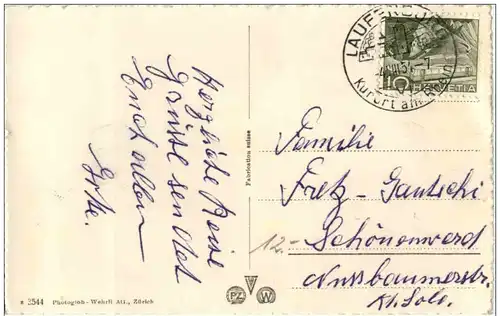 Herzliche Reise
Grüsse sendet
Euch allen
LAUFENBURG
Kurort am Rhein
10 HELVETIA
Fabrication suisse
Familie
Fretz-Gautschi
12- Schönenwerd
Nussbaumerstr.
Kt. Solo.
PZ W
R 2544 Photoglob-Wehrli AG., Zürich